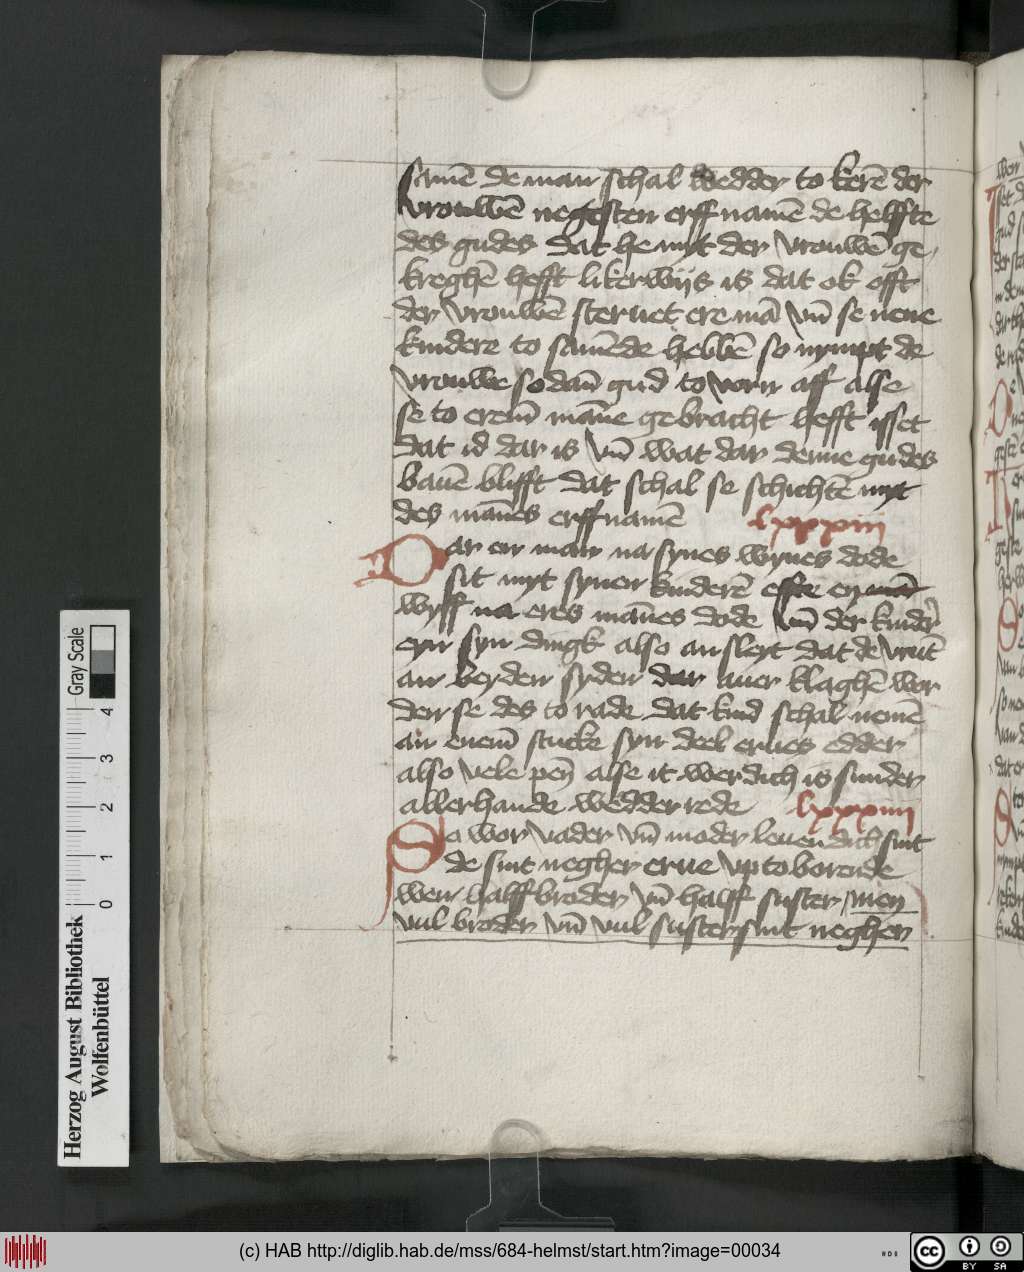 samē de man schal wedder to kerē der
vrouwē negesten erff namē de helffte
des gudes dat he myt der vrouwē ge
kreghē hefft likerwijs is dat ok offt
der vrouwē steruet ere mā vn̄ se nene
kindere to samēde hebbē so nympt de
vrouwe sodan̄ gud to vorn aff alse
se to erem̄ māne gebracht hefft isset
dat id dar is vn̄ wat dar denne gudes
bauē blifft dat schal se schichtē myt
des mānes erffnamē lxxxiii
Dar en man na synes wyues dode
sit myt synen kinderē efte eyn
wyff na eres mānes dode vn̄ der kinder
eyn syn dingk also ansleyt dat de vrūt
an beyden syden dar auer klaghē wor
den se des to rade dat kind schal nemē
an enem̄ stucke syn deel erues edder
also vele pen̄ alse it werdich is sunder
allerhande wedderrede lxxxiiii
So wor vader vn̄ moder leuendich sint
de sint negher erue vp to borende
wen halffbroder vn̄ halff suster men
vul broder vn̄ vul suster sint negher
Gray Scale
4
3
2
1
0
Herzog August Bibliothek
Wolfenbüttel
(c) HAB http://diglib.hab.de/mss/684-helmst/start.htm?image=00034
cc
BY SA